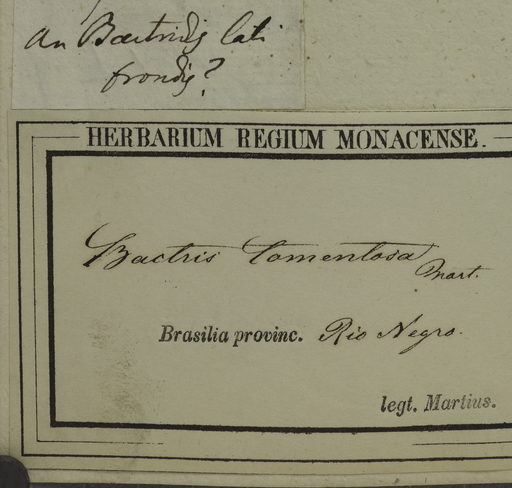 an Bactridis lati
frondis?
HERBARIUM REGIUM MONACENSE.
Bactris tomentosa
Mart.
Brasilia provinc. Rio Negro.
legt. Martius.